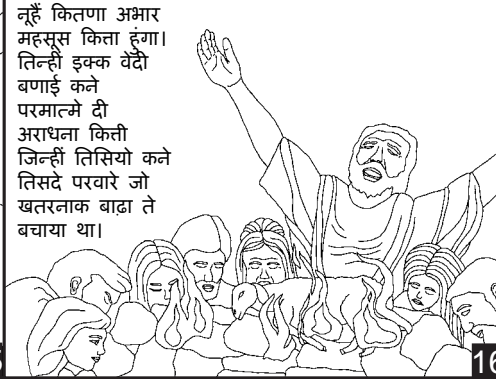 नूहैं कितणा अभार
महसूस कित्ता हुंगा।
तिन्हीं इक्क वेदी
बणाई कने
परमात्मे दी
अराधना कित्ती
जिन्हीं तिसियो कने
तिसदे परवारे जो
खतरनाक बाढ़ा ते
बचाया था।
16